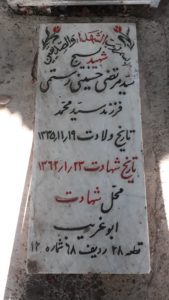 بسم رب الشهداء والصدیقین
شهید بسیج
سید مرتضی حسینی رستمی
فرزند سید محمد
تاریخ ولادت ۱۳۳۵/۱۱/۱۹
تاریخ شهادت ۱۳۶۲/۱/۲۳
محل شهادت
ابوغریب
قطعه ۲۸ ردیف ۶۸ شماره ۱۲